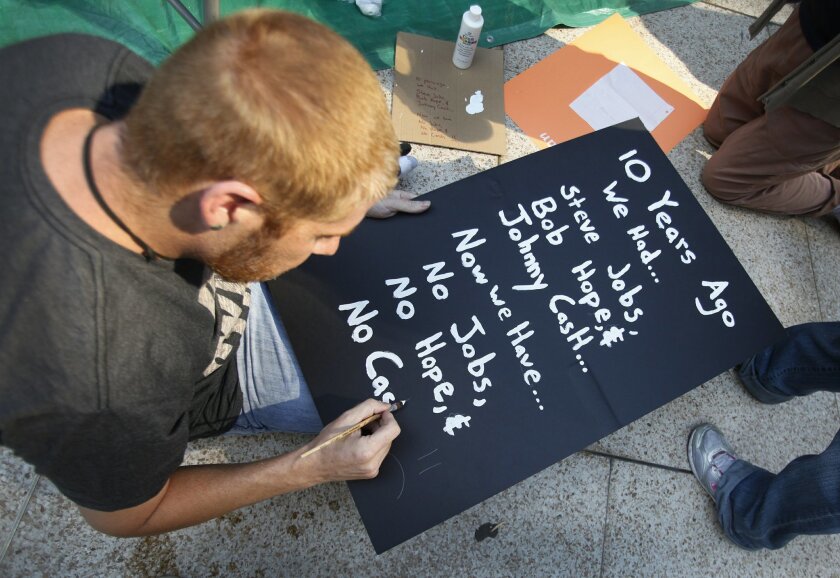 10 Years Ago
We Had...
Steve Jobs,
Bob Hope, &
Johnny Cash...
Now we Have...
No Jobs,
No Hope, &
No Cas